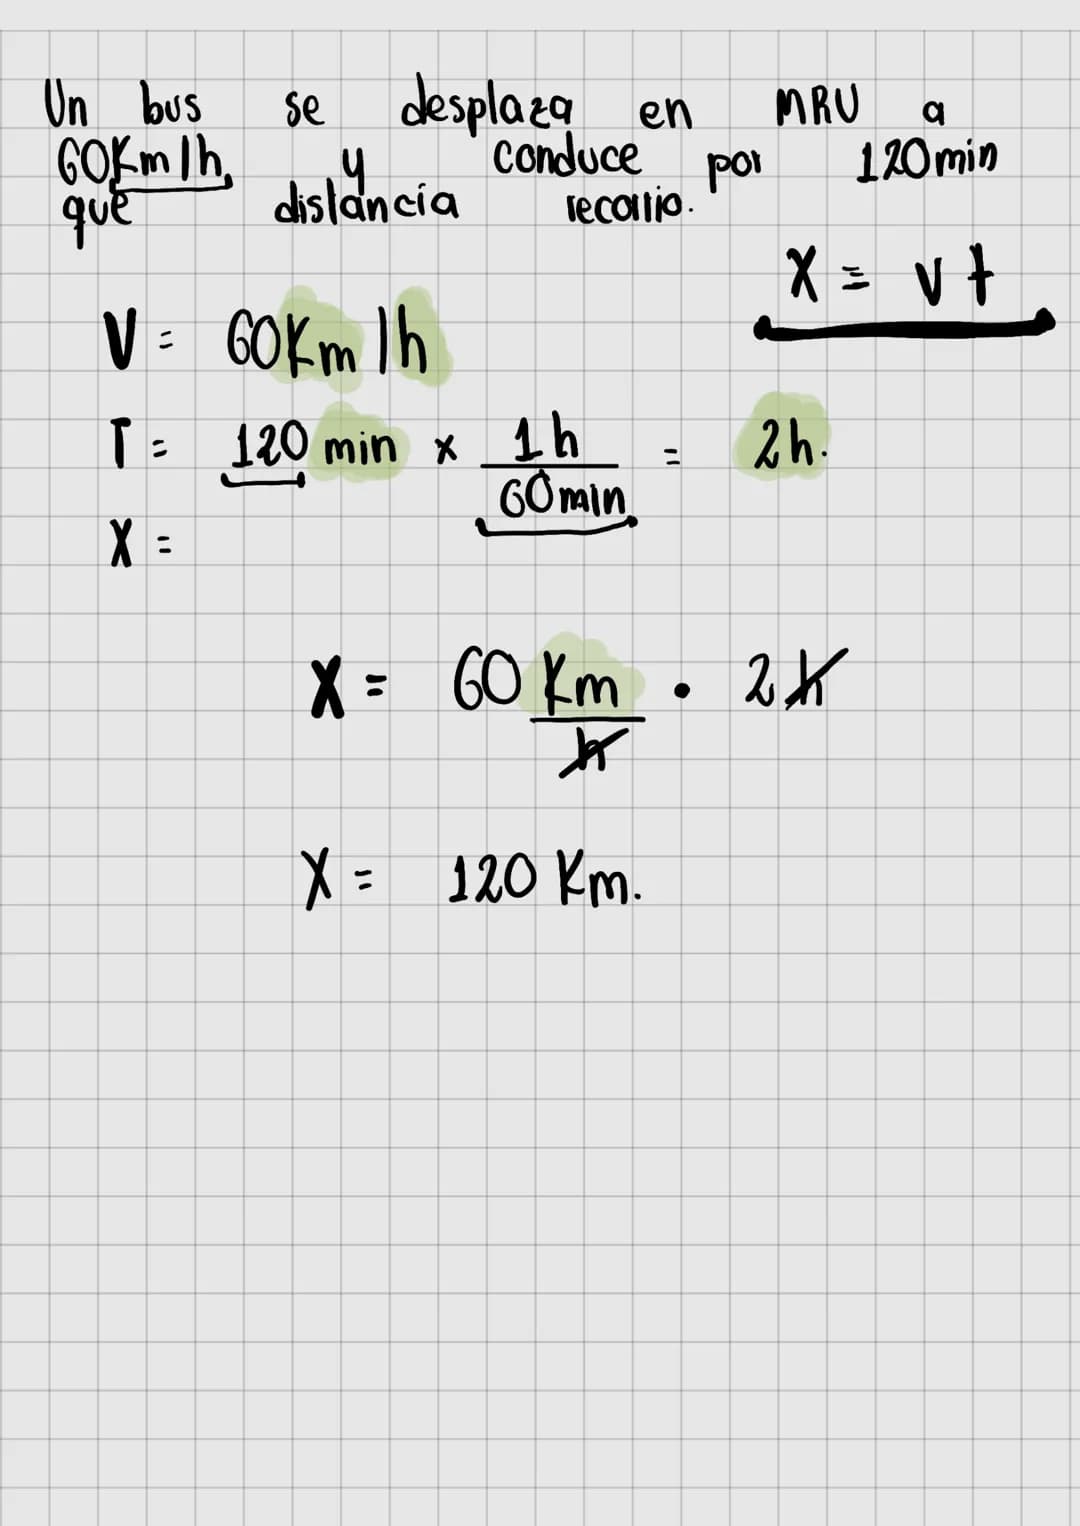 Un bus se desplaza en MRU a
60Km/h, y conduce por 120min
que distancia recorrio.
X = vt
V = 60Km/h
T = 120 min x 1h / 60min = 2h.
X =
X = 60 Km / h • 2h
X = 120 Km.